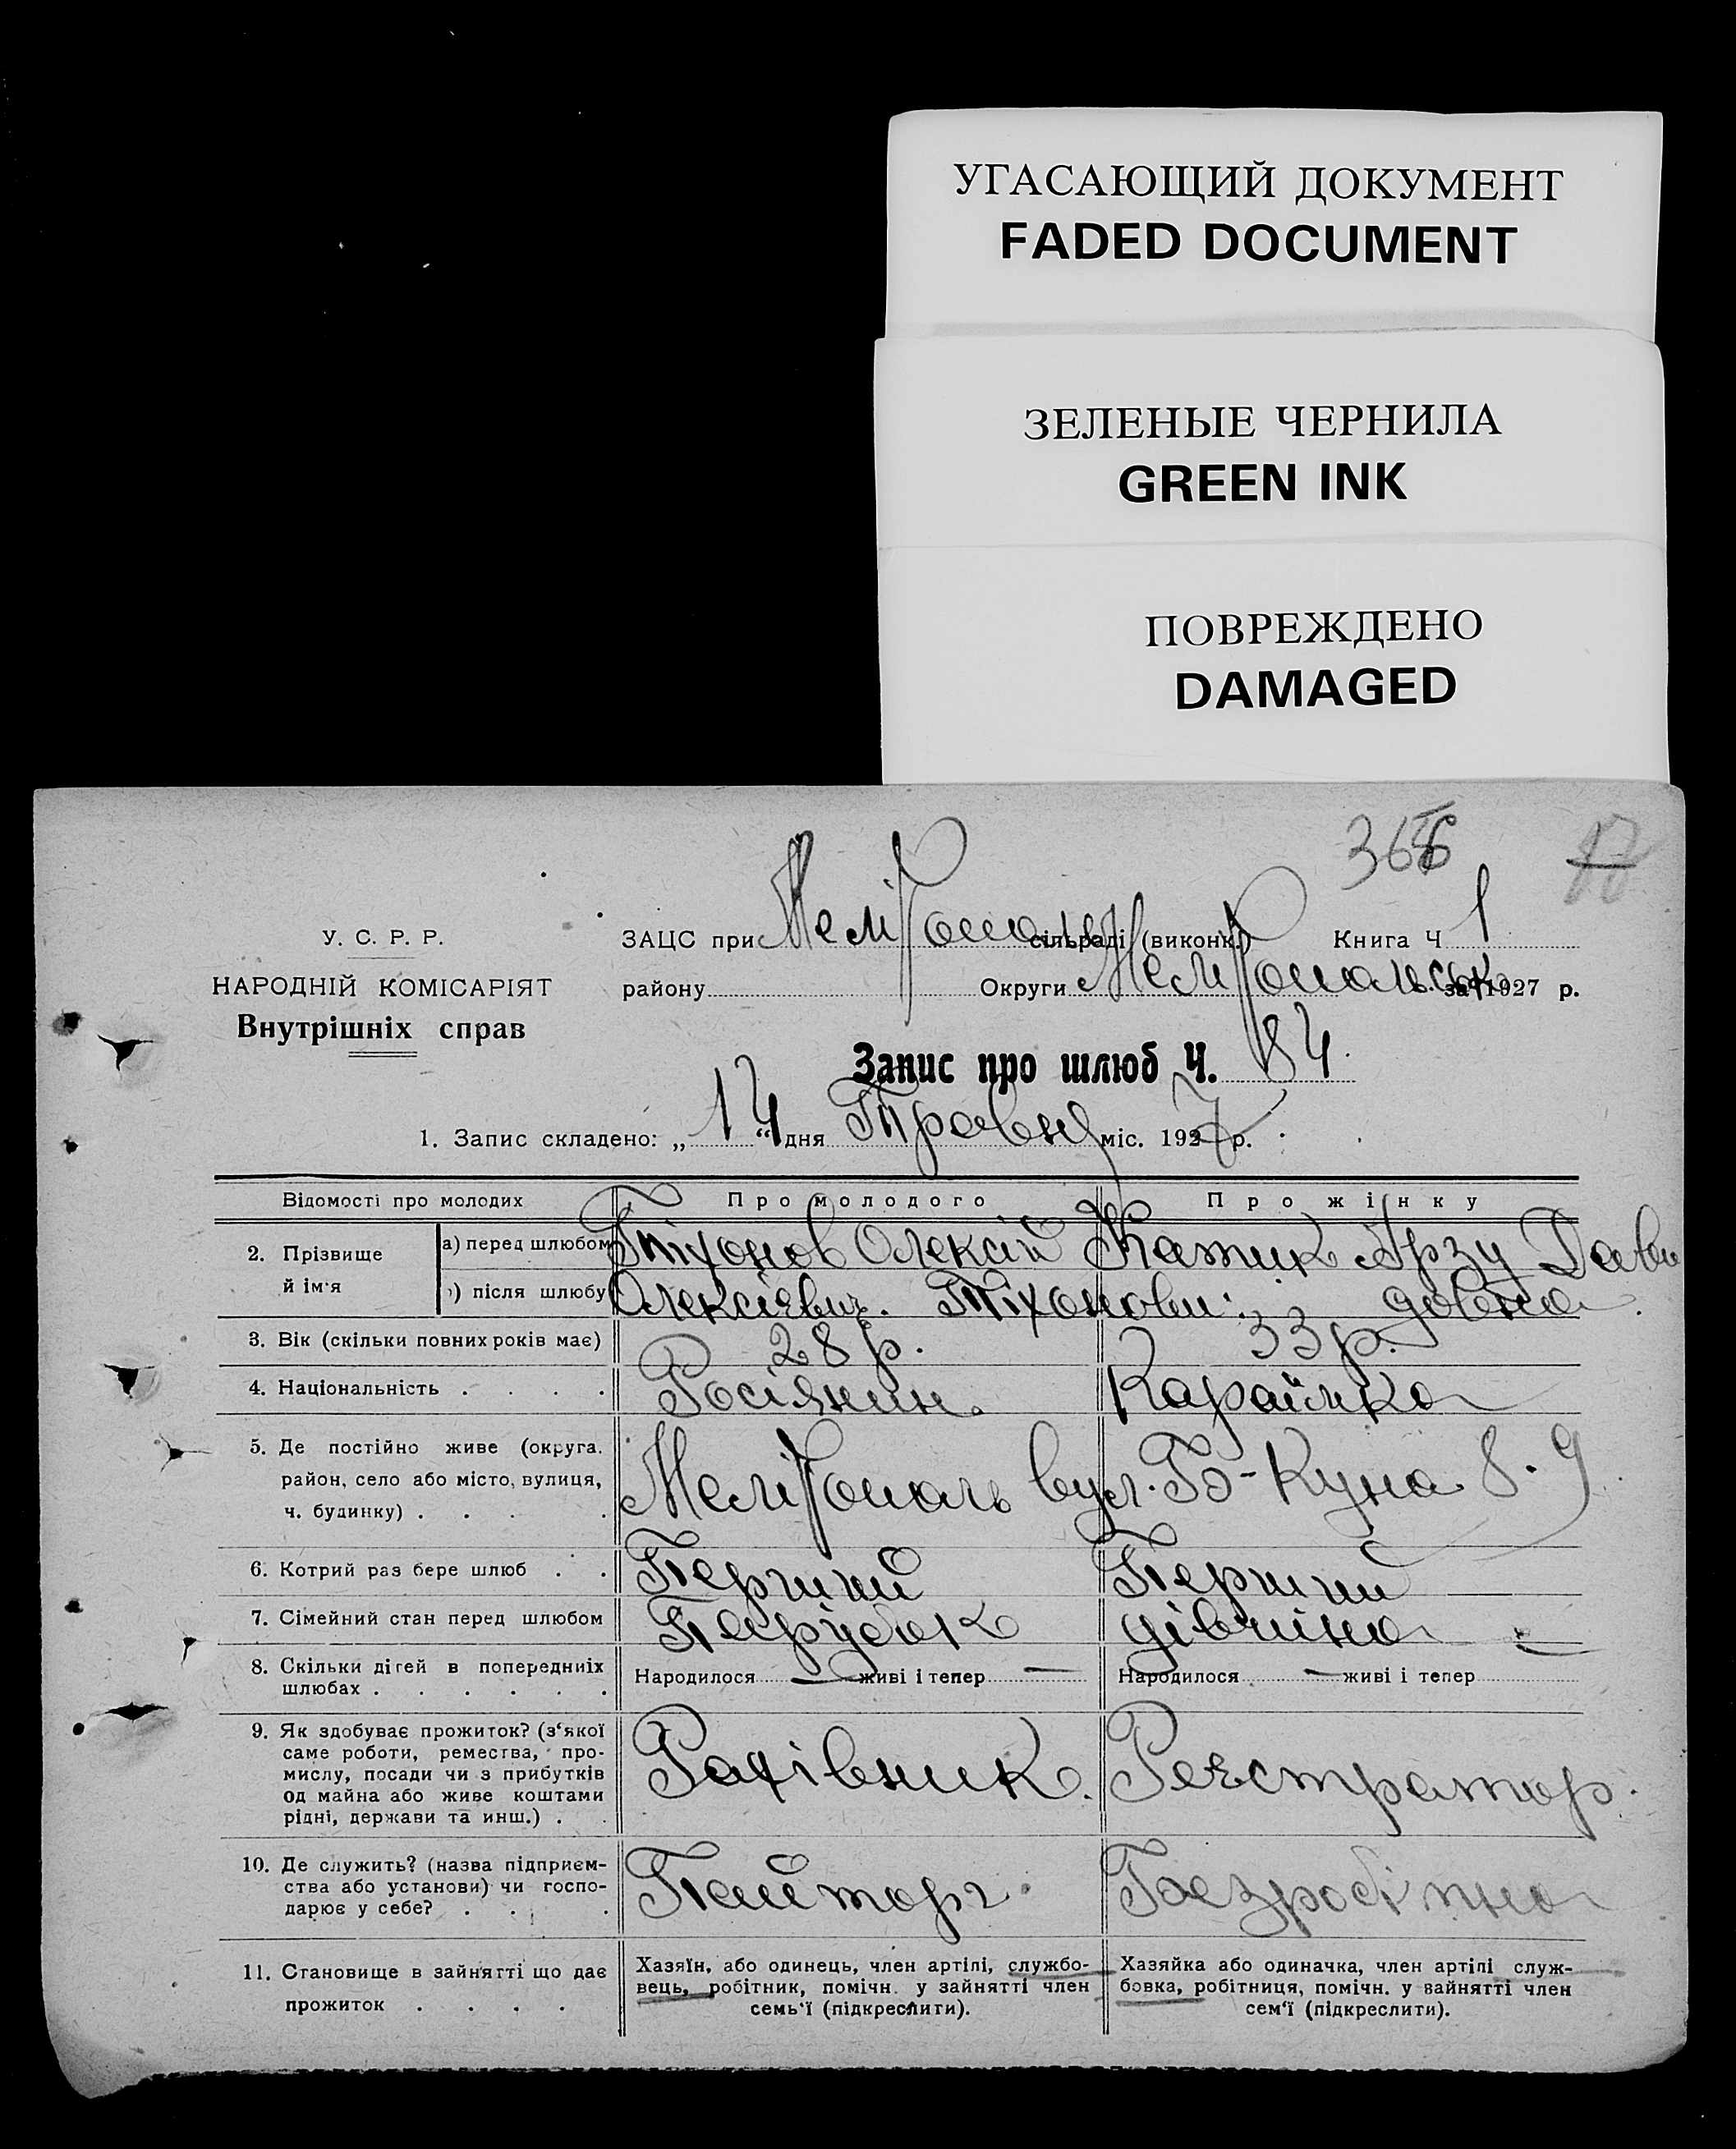 УГАСАЮЩИЙ ДОКУМЕНТ
FADED DOCUMENT
ЗЕЛЕНЫЕ ЧЕРНИЛА
GREEN INK
ПОВРЕЖДЕНО
DAMAGED
У. С. Р. Р.
НАРОДНІЙ КОМІСАРІЯТ
Внутрішніх справ
ЗАЦС при Мелітополь сільраді (виконк.) Книга Ч 1
району Округи Мелітопольськ за 1927 р.
Запис про шлюб Ч. 84
1. Запис складено: „ 14 “ дня Травня міс. 1927 р.
Відомості про молодих Про молодого Про жінку
2. Прізвище й ім'я
а) перед шлюбом Тіхонов Олексій Катик Арзу Дави
) після шлюбу Олексієвич. Тіхонови. довна
3. Вік (скільки повних років має) 28 р. 33 р.
4. Національність Росіянин. Караїмка
5. Де постійно живе (округа.
район, село або місто, вулиця,
ч. будинку)
Мелітополь вул. Б-Куна 8. 9
6. Котрий раз бере шлюб Перший Перший
7. Сімейний стан перед шлюбом Парубок дівчина
8. Скільки дітей в попередниіх
шлюбах
Народилося — живі і тепер —
Народилося — живі і тепер
9. Як здобуває прожиток? (з'якої
саме роботи, ремества, про-
мислу, посади чи з прибутків
од майна або живе коштами
рідні, держави та инш.)
Рахівник. Реєстратор.
10. Де служить? (назва підприєм-
ства або установи) чи госпо-
дарює у себе?
Пайторг. Безробітна
11. Становище в зайнятті що дає
прожиток
Хазяїн, або одинець, член артілі, службо-
вець, робітник, помічн. у зайнятті член
семь'ї (підкреслити).
Хазяйка або одиначка, член артілі служ-
бовка, робітниця, помічн. у зайнятті член
сем'ї (підкреслити).